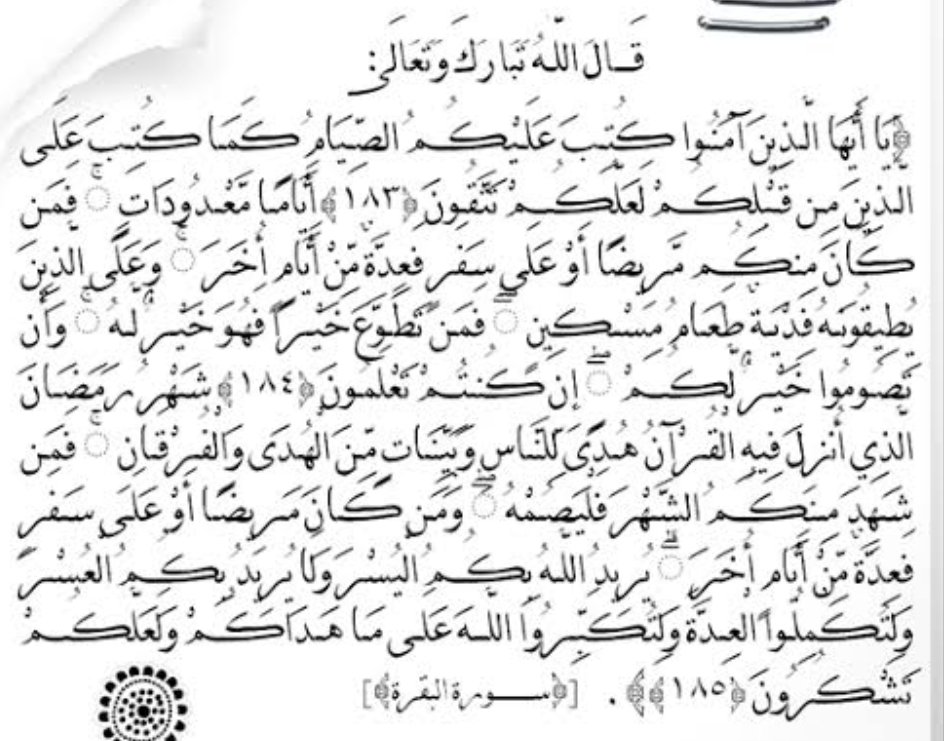 قَالَ اللَّهُ تَبَارَكَ وَتَعَالَى:
﴿يَا أَيُّهَا الَّذِينَ آمَنُوا كُتِبَ عَلَيْكُمُ الصِّيَامُ كَمَا كُتِبَ عَلَى
الَّذِينَ مِن قَبْلِكُمْ لَعَلَّكُمْ تَتَّقُونَ ﴿١٨٣﴾ أَيَّامًا مَّعْدُودَاتٍ ۚ فَمَن
كَانَ مِنكُم مَّرِيضًا أَوْ عَلَى سَفَرٍ فَعِدَّةٌ مِّنْ أَيَّامٍ أُخَرَ ۚ وَعَلَى الَّذِينَ
يُطِيقُونَهُ فِدْيَةٌ طَعَامُ مِسْكِينٍ ۖ فَمَن تَطَوَّعَ خَيْراً فَهُوَ خَيْرٌ لَّهُ ۚ وَأَن
تَصُومُوا خَيْرٌ لَّكُمْ ۖ إِن كُنتُمْ تَعْلَمُونَ ﴿١٨٤﴾ شَهْرُ رَمَضَانَ
الَّذِي أُنزِلَ فِيهِ الْقُرْآنُ هُدًى لِّلنَّاسِ وَبَيِّنَاتٍ مِّنَ الْهُدَى وَالْفُرْقَانِ ۚ فَمَن
شَهِدَ مِنكُمُ الشَّهْرَ فَلْيَصُمْهُ ۖ وَمَن كَانَ مَرِيضًا أَوْ عَلَى سَفَرٍ
فَعِدَّةٌ مِّنْ أَيَّامٍ أُخَرَ ۗ يُرِيدُ اللَّهُ بِكُمُ الْيُسْرَ وَلَا يُرِيدُ بِكُمُ الْعُسْرَ
وَلِتُكْمِلُوا الْعِدَّةَ وَلِتُكَبِّرُوا اللَّهَ عَلَى مَا هَدَاكُمْ وَلَعَلَّكُمْ
تَشْكُرُونَ ﴿١٨٥﴾﴾ . [﴿سورة البقرة﴾]